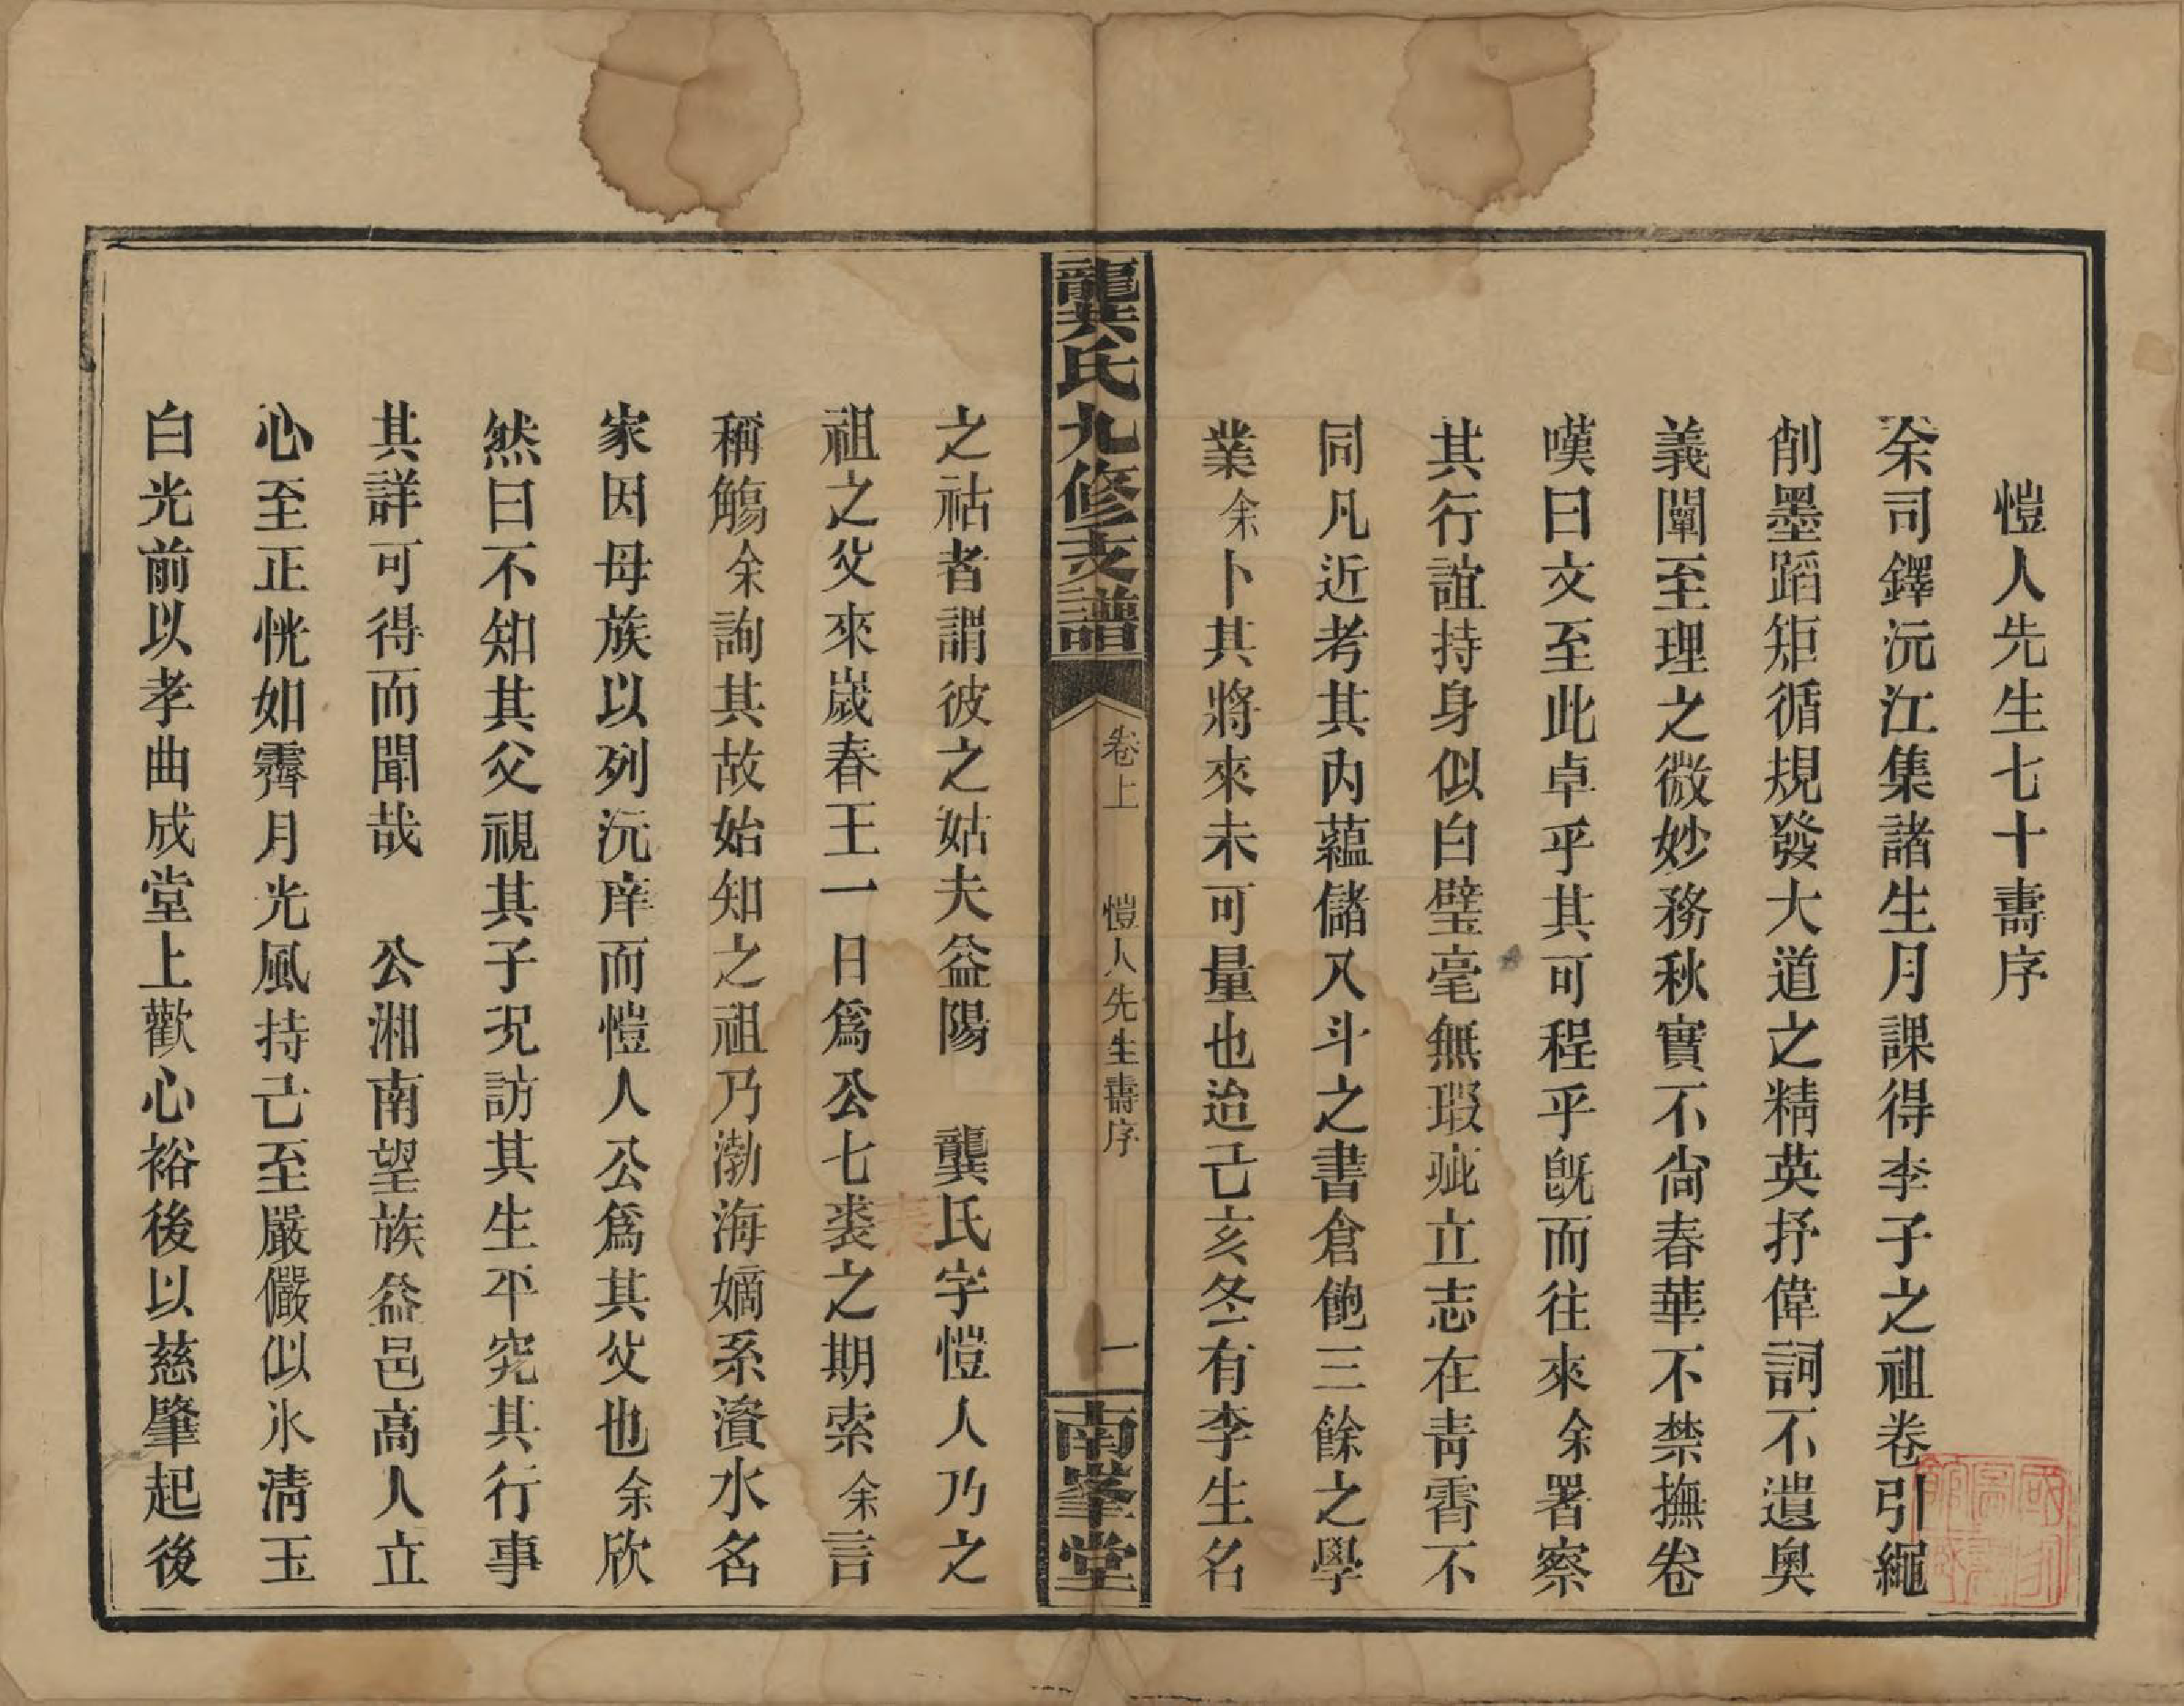 愷人先生七十壽序
余司鐸沅江集諸生月課得李子之祖卷引繩
削墨蹈矩循規發大道之精英抒偉詞不遺奧
義闡至理之微妙務秋實不尙春華不禁撫卷
嘆曰文至此卓乎其可程乎旣而往來余署察
其行誼持身似白璧毫無瑕疵立志在青霄不
同凡近考其內蘊儲乂斗之書倉飽三餘之學
業余卜其將來未可量也迨己亥冬有李生名
龔氏九修支譜
卷上
愷人先生壽序
一
南峯堂
之祜者謂彼之姑夫益陽　龔氏字愷人乃之
祖之父來歲春王一日爲公七裘之期索余言
稱觴余詢其故始知之祖乃渤海嫡系濱水名
家因母族以列沅庠而愷人公爲其父也余欣
然曰不知其父視其子況訪其生平究其行事
其詳可得而聞哉　公湘南望族益邑高人立
心至正恍如霽月光風持己至嚴儼似氷清玉
白光前以孝曲成堂上歡心裕後以慈肇起後